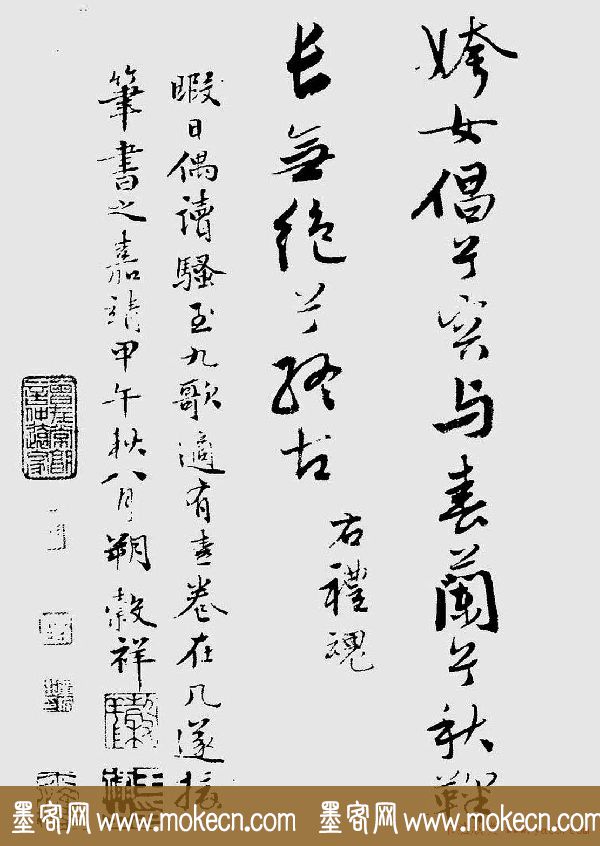 姱女倡兮容与春蘭兮秋鞠
长無絶兮終古
右禮魂
暇日偶讀騷至九歌適有素卷在几遂
筆書之嘉靖甲午秋八月朔穀祥
墨客网 www.mokecn.com 墨客网 www.mokecn.com